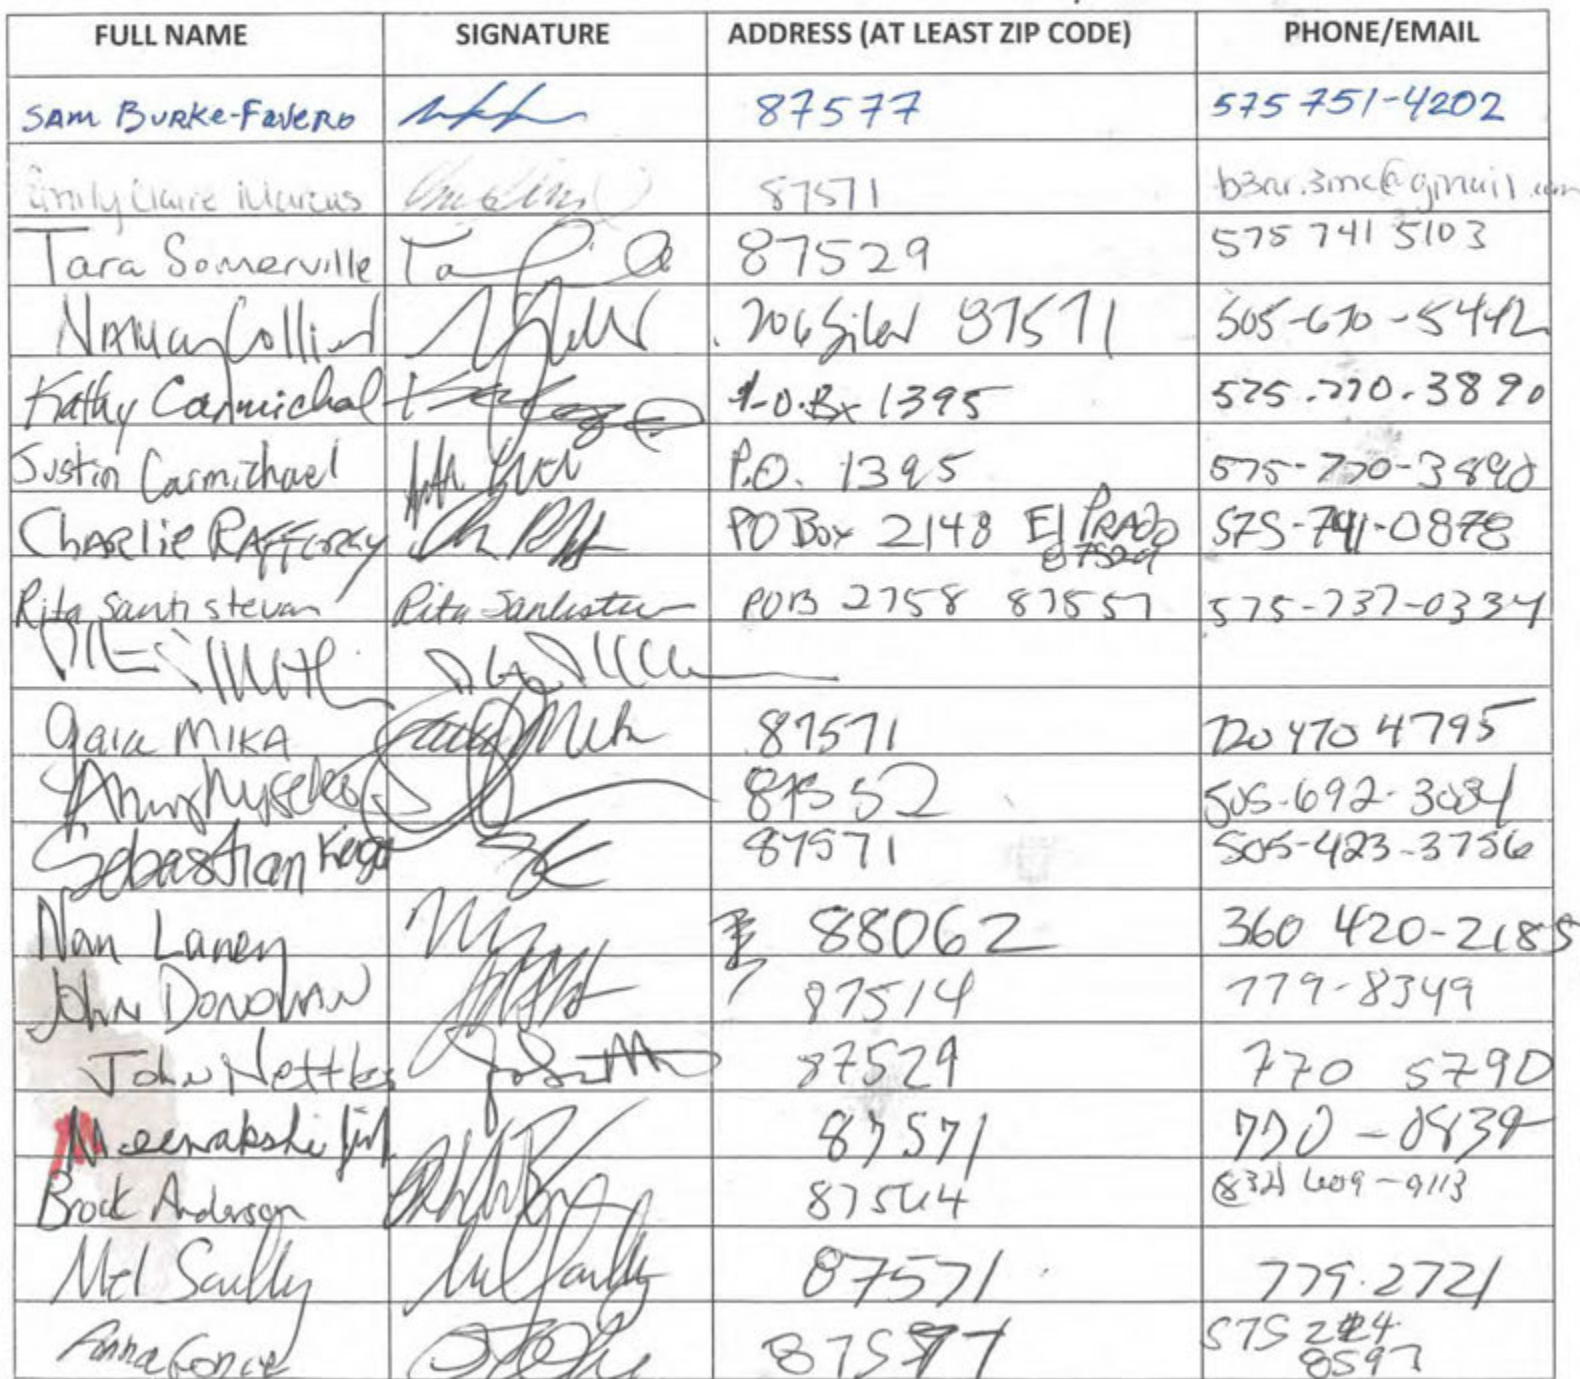 FULL NAME SIGNATURE ADDRESS (AT LEAST ZIP CODE) PHONE/EMAIL
SAM BURKE-FAVERO 87577 575 751-4202
Emily Claire Marcus 87571 @gmail.com
Tara Somerville 87529 575 741 5103
87571 505-670-5442
Kathy Carmichal P.O.Bx 1395 575.770.3890
Justin Carmichael P.O. 1395 575-770-3890
Charlie RAFFERTY PO Box 2148 El PRADO 575-741-0878
87529
Rita Santistevan Rita Santistevan POB 2758 87557 575-737-0334
MIKA 87571 720 470 4795
87552 505-692-3084
Sebastian 87571 505-423-3756
Nan Laney 88062 360 420-2185
John DONOVAN 87514 779-8349
John Nettles 87529 770 5790
Meenakshi 87571 770-0839
Brock Anderson 87544 (832) 609-9113
Mel Scully Mel Scully 87571 779.2721
Anna 575 224
8597